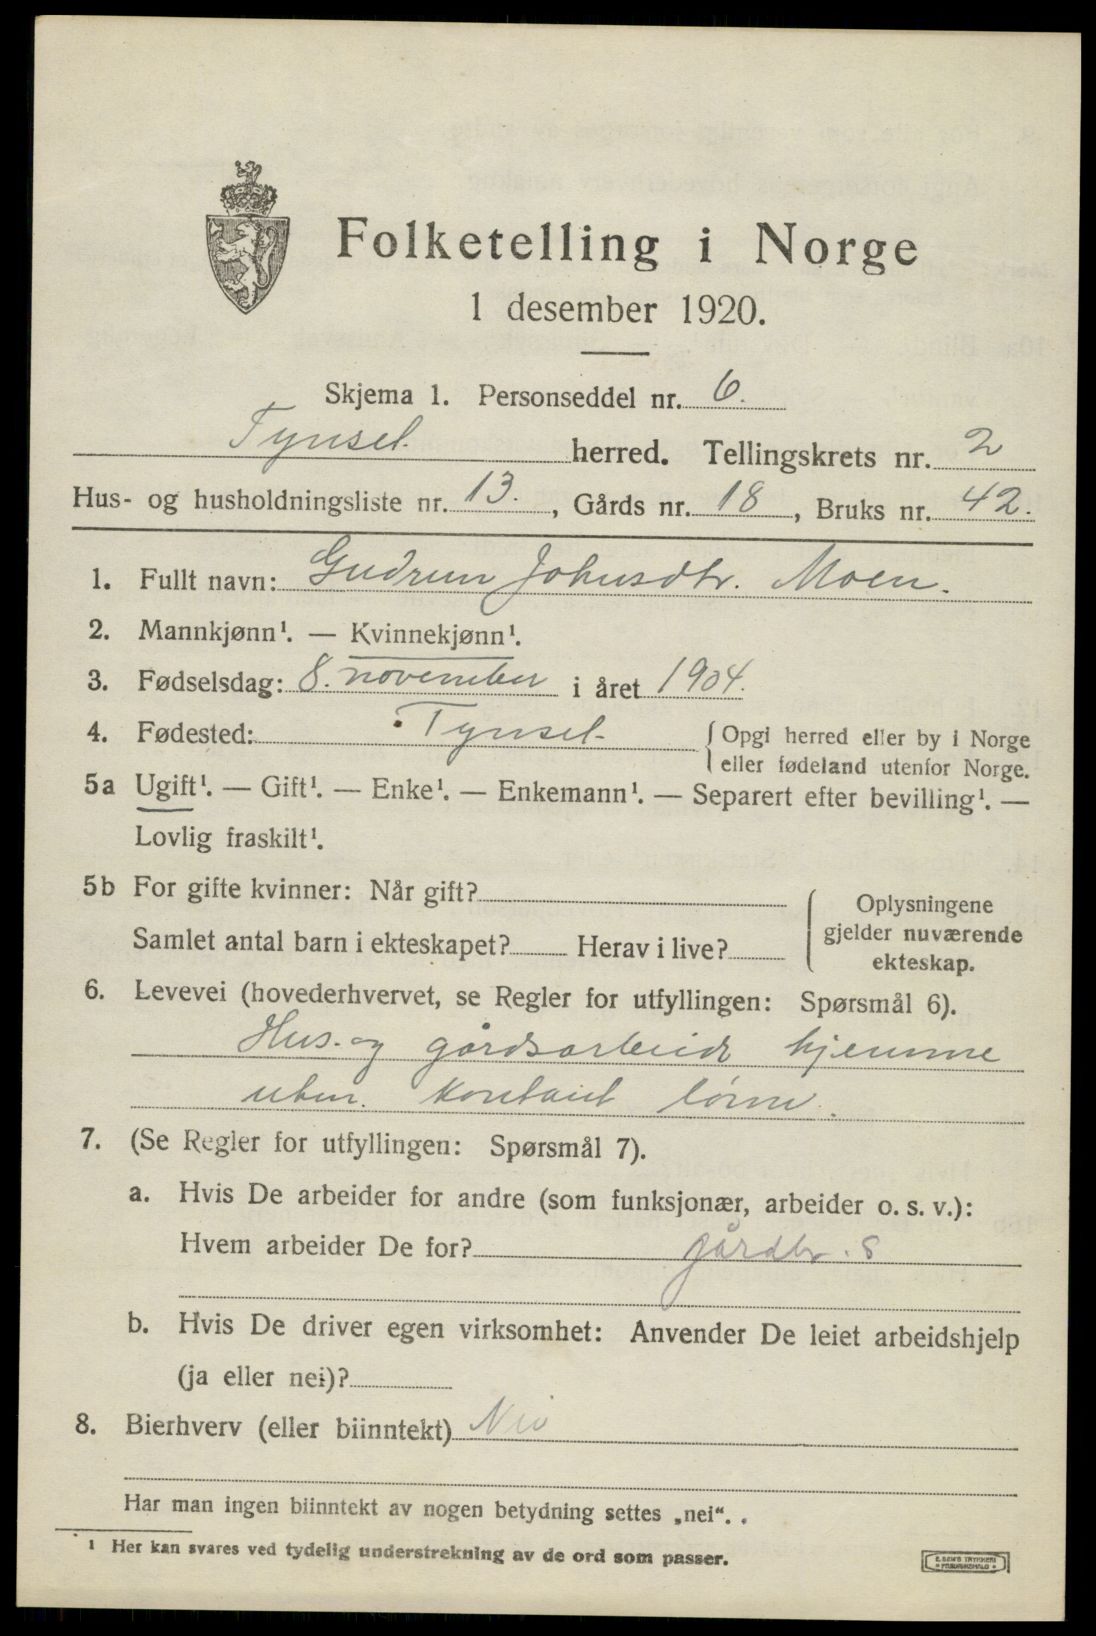 Folketelling i Norge
1 desember 1920.
Skjema 1. Personseddel nr. 6.
Tynset herred. Tellingskrets nr. 2
Hus- og husholdningsliste nr. 13. , Gårds nr. 18 , Bruks nr. 42.
1. Fullt navn: Gudrun Johnsdtr. Moen.
2. Mannkjønn¹. — Kvinnekjønn¹.
3. Fødselsdag: 8. november i året 1904.
4. Fødested: Tynset { Opgi herred eller by i Norge
eller fødeland utenfor Norge.
5a Ugift¹. — Gift¹. — Enke¹. — Enkemann¹. — Separert efter bevilling¹. —
Lovlig fraskilt¹.
5b For gifte kvinner: Når gift?
Samlet antal barn i ekteskapet? Herav i live?
{ Oplysningene
gjelder nuværende
ekteskap.
6. Levevei (hovederhvervet, se Regler for utfyllingen: Spørsmål 6).
Hus- og gårdsarbeide hjemme
uten kontant lønn.
7. (Se Regler for utfyllingen: Spørsmål 7).
a. Hvis De arbeider for andre (som funksjonær, arbeider o. s. v.):
Hvem arbeider De for? gårdbr. s
b. Hvis De driver egen virksomhet: Anvender De leiet arbeidshjelp
(ja eller nei)?
8. Bierhverv (eller biinntekt) Nei
Har man ingen biinntekt av nogen betydning settes „nei“.
¹ Her kan svares ved tydelig understrekning av de ord som passer.